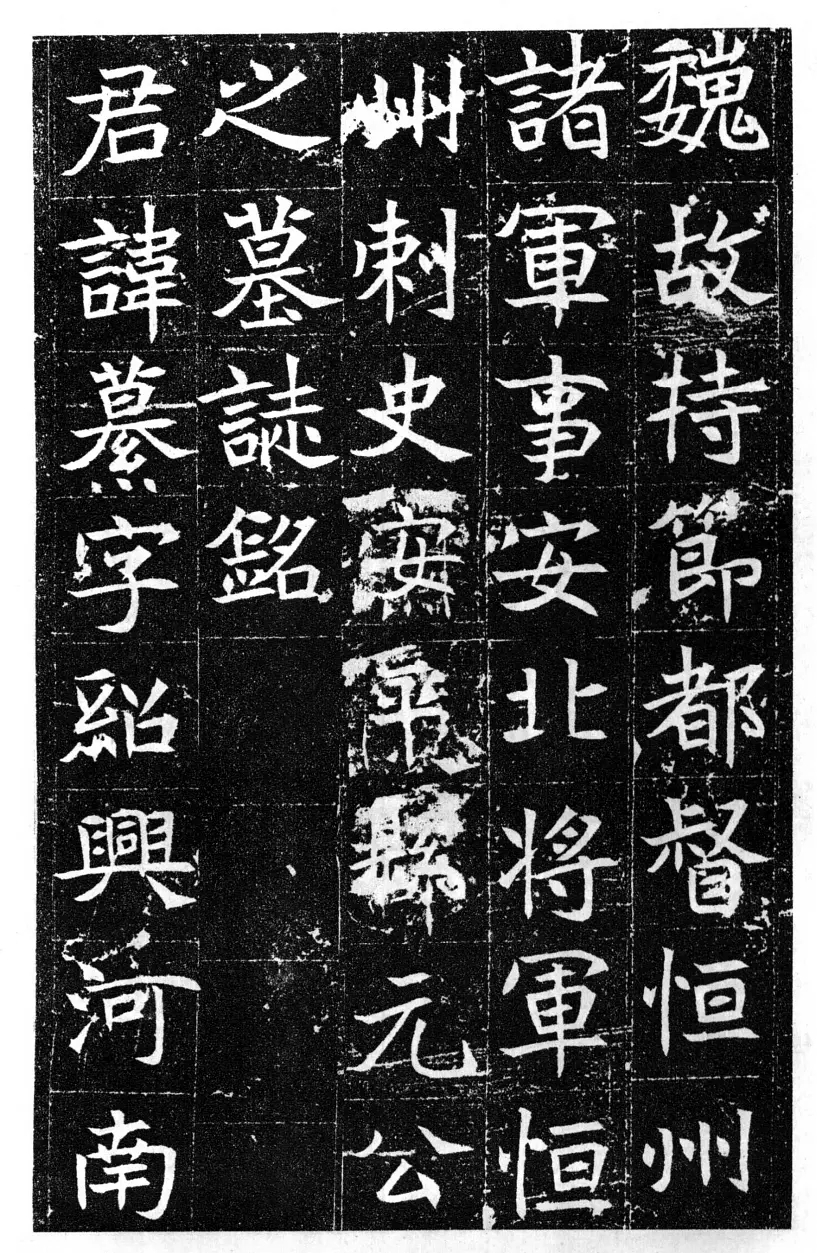 魏故持節都督恒州
諸軍事安北將軍恒
州刺史安平縣元公
之墓誌銘
君諱纂字紹興河南